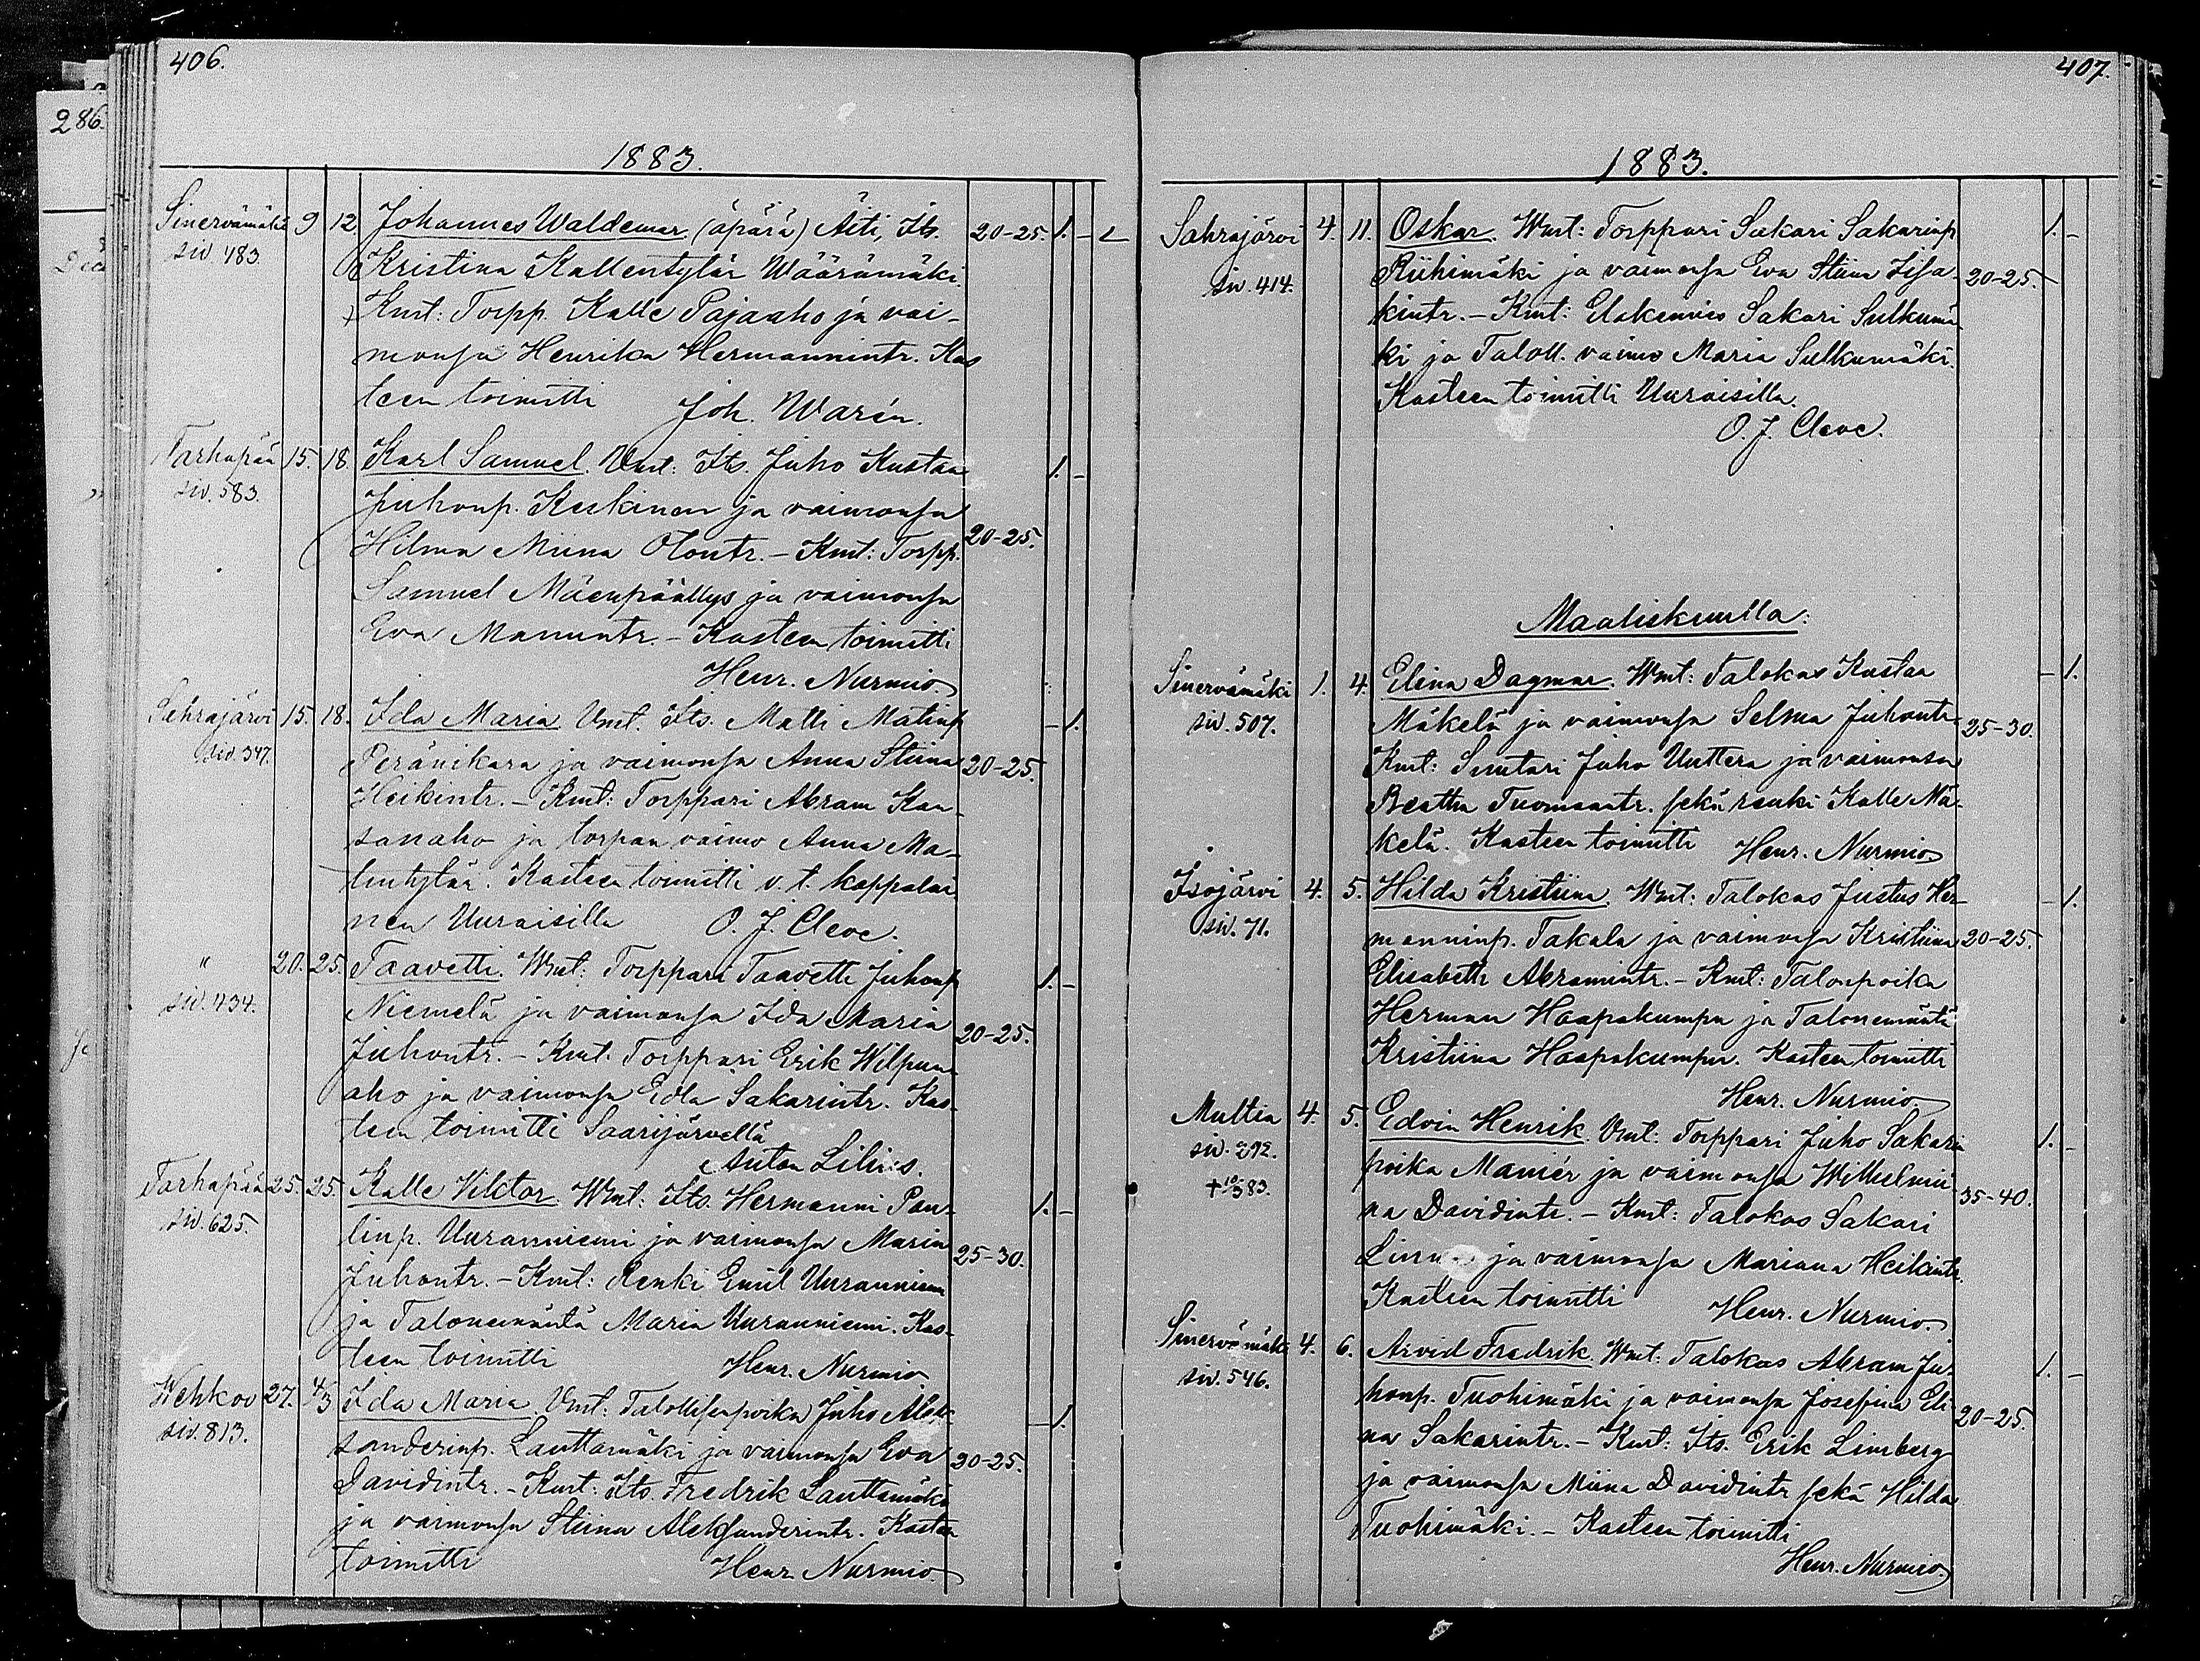 406.
286.
1883.
Sinervämäki 9 12 Johannes Waldemar (äpärä) Äiti, Its. 20-25. 1. -
siv. 483. Kristina Kallentytär Wäärämäki.
Kmt: Torpp. Kalle Pajaaho ja vai-
monsa Henrika Hermannintr. Kas
teen toimitti Joh. Warén.
Tarhapää 15. 18. Karl Samuel. Vmt: Its. Juho Kustaa 1. -
siv. 583. Juhonp. Keskinen ja vaimonsa
Hilma Miina Olontr. - Kmt: Torpp. 20-25.
Samuel Mäenpäällys ja vaimonsa
Eva Manuntr. - Kasteen toimitti
Henr. Nurmio.
Sahrajärvi 15. 18. Ida Maria. Vmt. Its. Matti Matinp - 1.
siv. 347. Peränikara ja vaimonsa Anna Stiina 20-25.
Heikintr. - Kmt: Torppari Abram Kan-
sanaho ja torpan vaimo Anna Ma-
tintytär. Kasteen toimitti v. t. kappalai
nen Uuraisilla O. J. Cleve.
" 20. 25. Taavetti. Wmt: Torppari Taavetti Juhonp 1. -
siv. 434. Niemelä ja vaimonsa Ida Maria 20-25.
Juhontr. - Kmt. Torppari Erik Wilpun-
aho ja vaimonsa Edla Sakarintr. Kas-
teen toimitti Saarijärvellä
Anton Lilius.
Tarhapää 25. 25. Kalle Viktor. Wmt: Its. Hermanni Pau- 1. -
siv. 625. linp. Uuranniemi ja vaimonsa Maria 25-30.
Juhontr. - Kmt: Renki Emil Uuranniemi
ja Talonemäntä Maria Uuranniemi. Kas-
teen toimitti Henr. Nurmio
Wehkoo 27. 4/3 Ida Maria. Vmt: Talollisenpoika Juho Alek - 1.
siv. 813. sanderinp. Lauttamäki ja vaimonsa Eva 20-25.
Davidintr. - Kmt: Its. Fredrik Lauttamäki
ja vaimonsa Stiina Aleksanderintr. Kasteen
toimitti Henr. Nurmio.
407.
1883.
Sahrajärvi 4. 11. Oskar. Wmt: Torppari Sakari Sakarinp 1. -
siv. 414. Riihimäki ja vaimonsa Eva Stiina Iisa- 20-25.
kintr. - Kmt: Elakemies Sakari Sulkumä
ki ja Taloll. vaimo Maria Sulkumäki.
Kasteen toimitti Uuraisilla.
O. J. Cleve.
Maaliskuulla:
Sinervämäki 1. 4. Elina Dagmar. Wmt: Talokas Kustaa - 1.
siv. 507. Mäkelä ja vaimonsa Selma Juhontr 25-30.
Kmt: Suutari Juho Uuttera ja vaimonsa
Beatha Tuomaantr. sekä renki Kalle Mä-
kelä. Kasteen toimitti Henr. Nurmio
Isojärvi 4. 5. Hilda Kristiina. Wmt: Talokas Justus Her- - 1.
siv. 71. manninp. Takala ja vaimonsa Kristiina 20-25.
Elisabetti Abramintr. - Kmt: Talonpoika
Herman Haapakumpu ja Talonemäntä
Kristiina Haapakumpu. Kasteen toimitti
Henr. Nurmio
Multia 4. 5. Edvin Henrik. Vmt: Torppari Juho Sakari 1. -
siv. 292. poika Maniér ja vaimonsa Wilhelmii 35-40.
na Davidintr. - Kmt: Talokas Sakari
ja vaimonsa Mariana Heikintr.
Kasteen toimitti Henr. Nurmio.
Sinervämäki 4. 6. Arvid Fredrik. Wmt: Talokas Abram Ju- 1. -
siv. 546. honp. Tuohimäki ja vaimonsa Josefina Eli 20-25.
na Sakarintr. - Kmt: Its. Erik Limberg
ja vaimonsa Miina Davidintr sekä Hilda
Tuohimäki. - Kasteen toimitti
Henr. Nurmio.